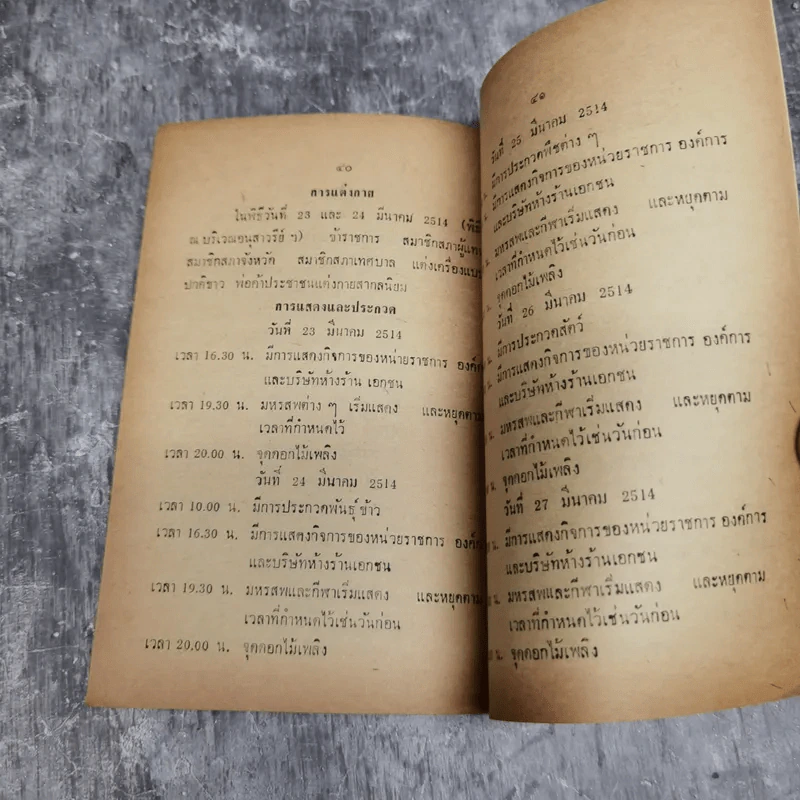 ๔๐
การแต่งกาย
ในพิธีวันที่ 23 และ 24 มีนาคม 2514
ณ บริเวณอนุสาวรีย์ ฯ) ข้าราชการ สมาชิกสภาผู้แทน
สมาชิกสภาจังหวัด สมาชิกสภาเทศบาล แต่งเครื่องแบบ
ปกติขาว พ่อค้าประชาชนแต่งกายสากลนิยม
การแสดงและประกวด
วันที่ 23 มีนาคม 2514
เวลา 16.30 น. มีการแสดงกิจการของหน่วยราชการ องค์การ
และบริษัทห้างร้าน เอกชน
เวลา 19.30 น. มหรสพต่าง ๆ เริ่มแสดง และหยุดตาม
เวลาที่กำหนดไว้
เวลา 20.00 น. จุดดอกไม้เพลิง
วันที่ 24 มีนาคม 2514
เวลา 10.00 น. มีการประกวดพันธุ์ข้าว
เวลา 16.30 น. มีการแสดงกิจการของหน่วยราชการ องค์การ
และบริษัทห้างร้านเอกชน
เวลา 19.30 น. มหรสพและกีฬาเริ่มแสดง และหยุดตาม
เวลาที่กำหนดไว้เช่นวันก่อน
เวลา 20.00 น. จุดดอกไม้เพลิง
๔๑
วันที่ 25 มีนาคม 2514
น. มีการประกวดพืชต่าง ๆ
น. มีการแสดงกิจการของหน่วยราชการ องค์การ
และบริษัทห้างร้านเอกชน
น. มหรสพและกีฬาเริ่มแสดง และหยุดตาม
เวลาที่กำหนดไว้เช่นวันก่อน
น. จุดดอกไม้เพลิง
วันที่ 26 มีนาคม 2514
น. มีการประกวดสัตว์
น. มีการแสดงกิจการของหน่วยราชการ องค์การ
และบริษัทห้างร้านเอกชน
น. มหรสพและกีฬาเริ่มแสดง และหยุดตาม
เวลาที่กำหนดไว้เช่นวันก่อน
น. จุดดอกไม้เพลิง
วันที่ 27 มีนาคม 2514
น. มีการแสดงกิจการของหน่วยราชการ องค์การ
และบริษัทห้างร้านเอกชน
น. มหรสพและกีฬาเริ่มแสดง และหยุดตาม
เวลาที่กำหนดไว้เช่นวันก่อน
น. จุดดอกไม้เพลิง